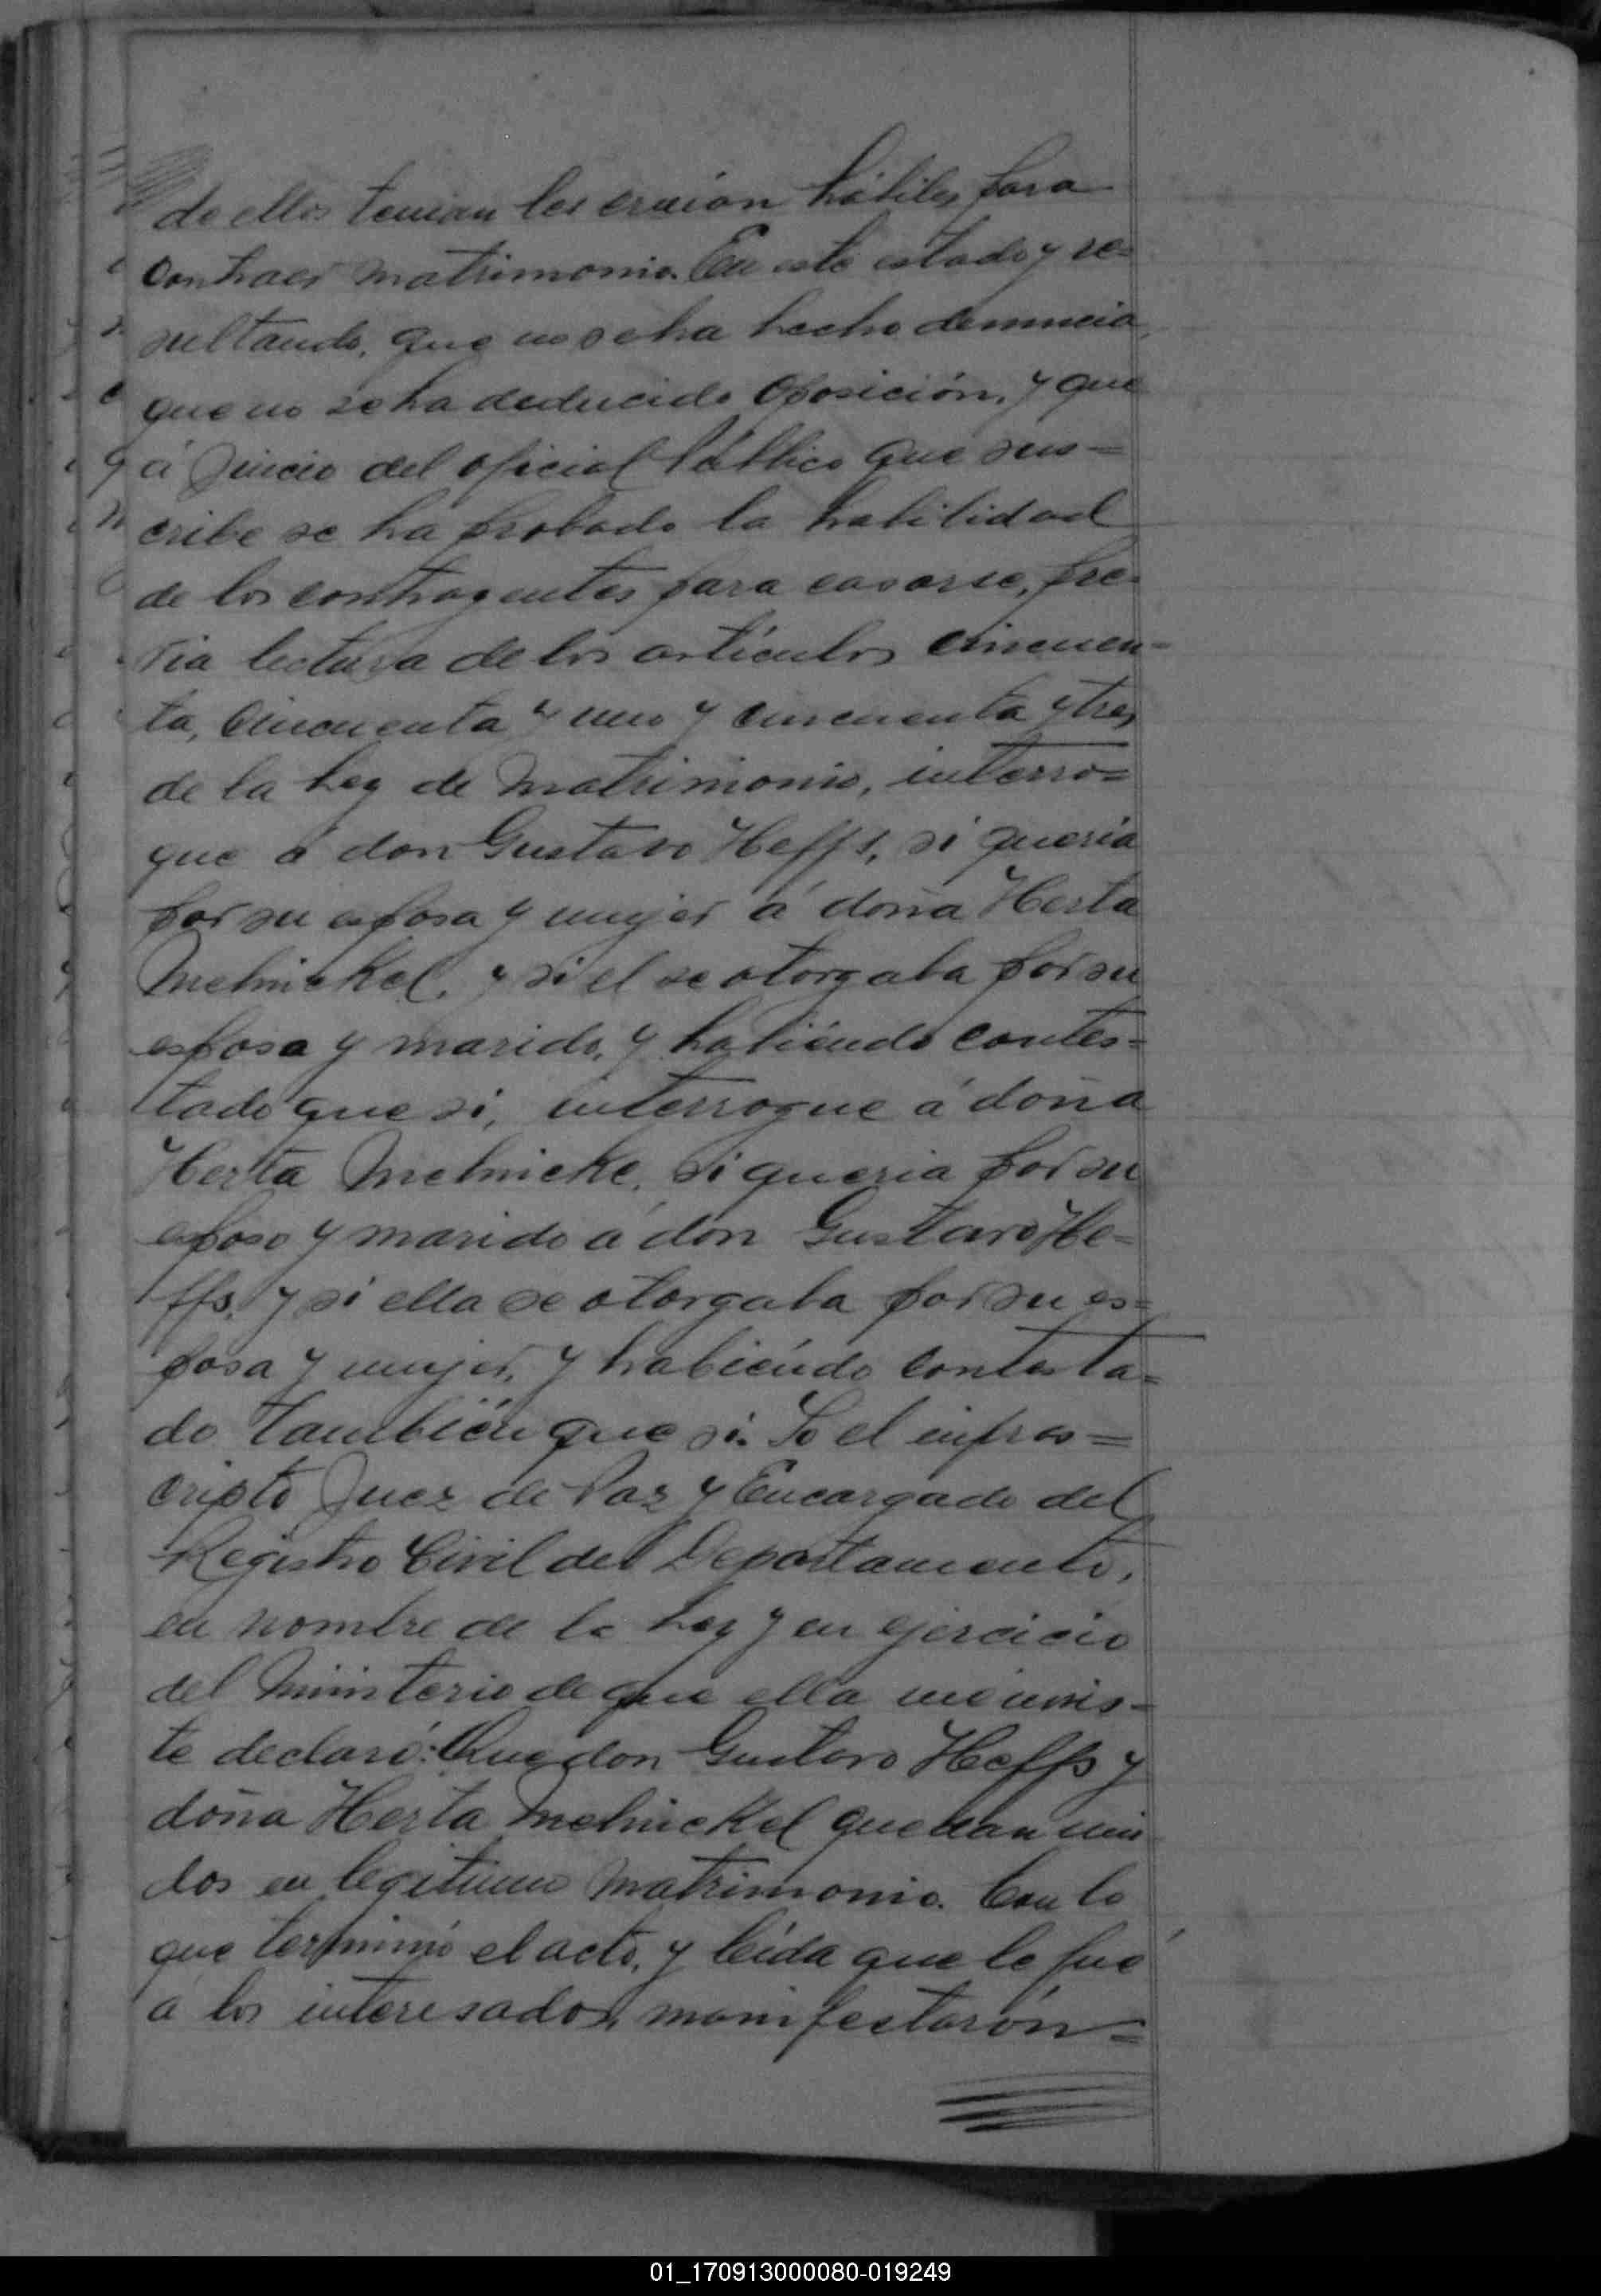 de ellos tenian les creian hábiles para
contraer matrimonio. En este estado y re=
sultando, que no se ha hecho denuncia,
que no se ha deducido oposición, y que
á juicio del oficial Público que sus=
cribe se ha probado la habilidad
de los contrayentes para casarse, pre=
via lectura de los artículos cincuen=
ta, cincuenta y uno y cincuenta y tres
de la Ley de Matrimonio, interro=
que á don Gustavo Heffs, si queria
por su esposa y mujer á doña Herta
Melnickel, y si el se otorgaba por su
esposa y marido, y habiéndo contes=
tado que si, interrogue á doña
Herta Melnicke, si queria por su
esposo y marido a don Gustavo He=
ffs, y si ella se otorgaba por su es=
posa y mujer, y habiéndo contesta=
do también que si. Yo el infras=
cripto Juez de Paz y Encargado del
Registro Civil del Departamento,
en nombre de la Ley y en ejercicio
del Ministerio de que ella me invis=
te declaró: Que don Gustavo Heffs y
doña Herta Melnickel quedan uni
dos en legitimo matrimonio. Con lo
que terminó el acto, y leída que le fué
a los interesados, manifestarón=
01_170913000080-019249